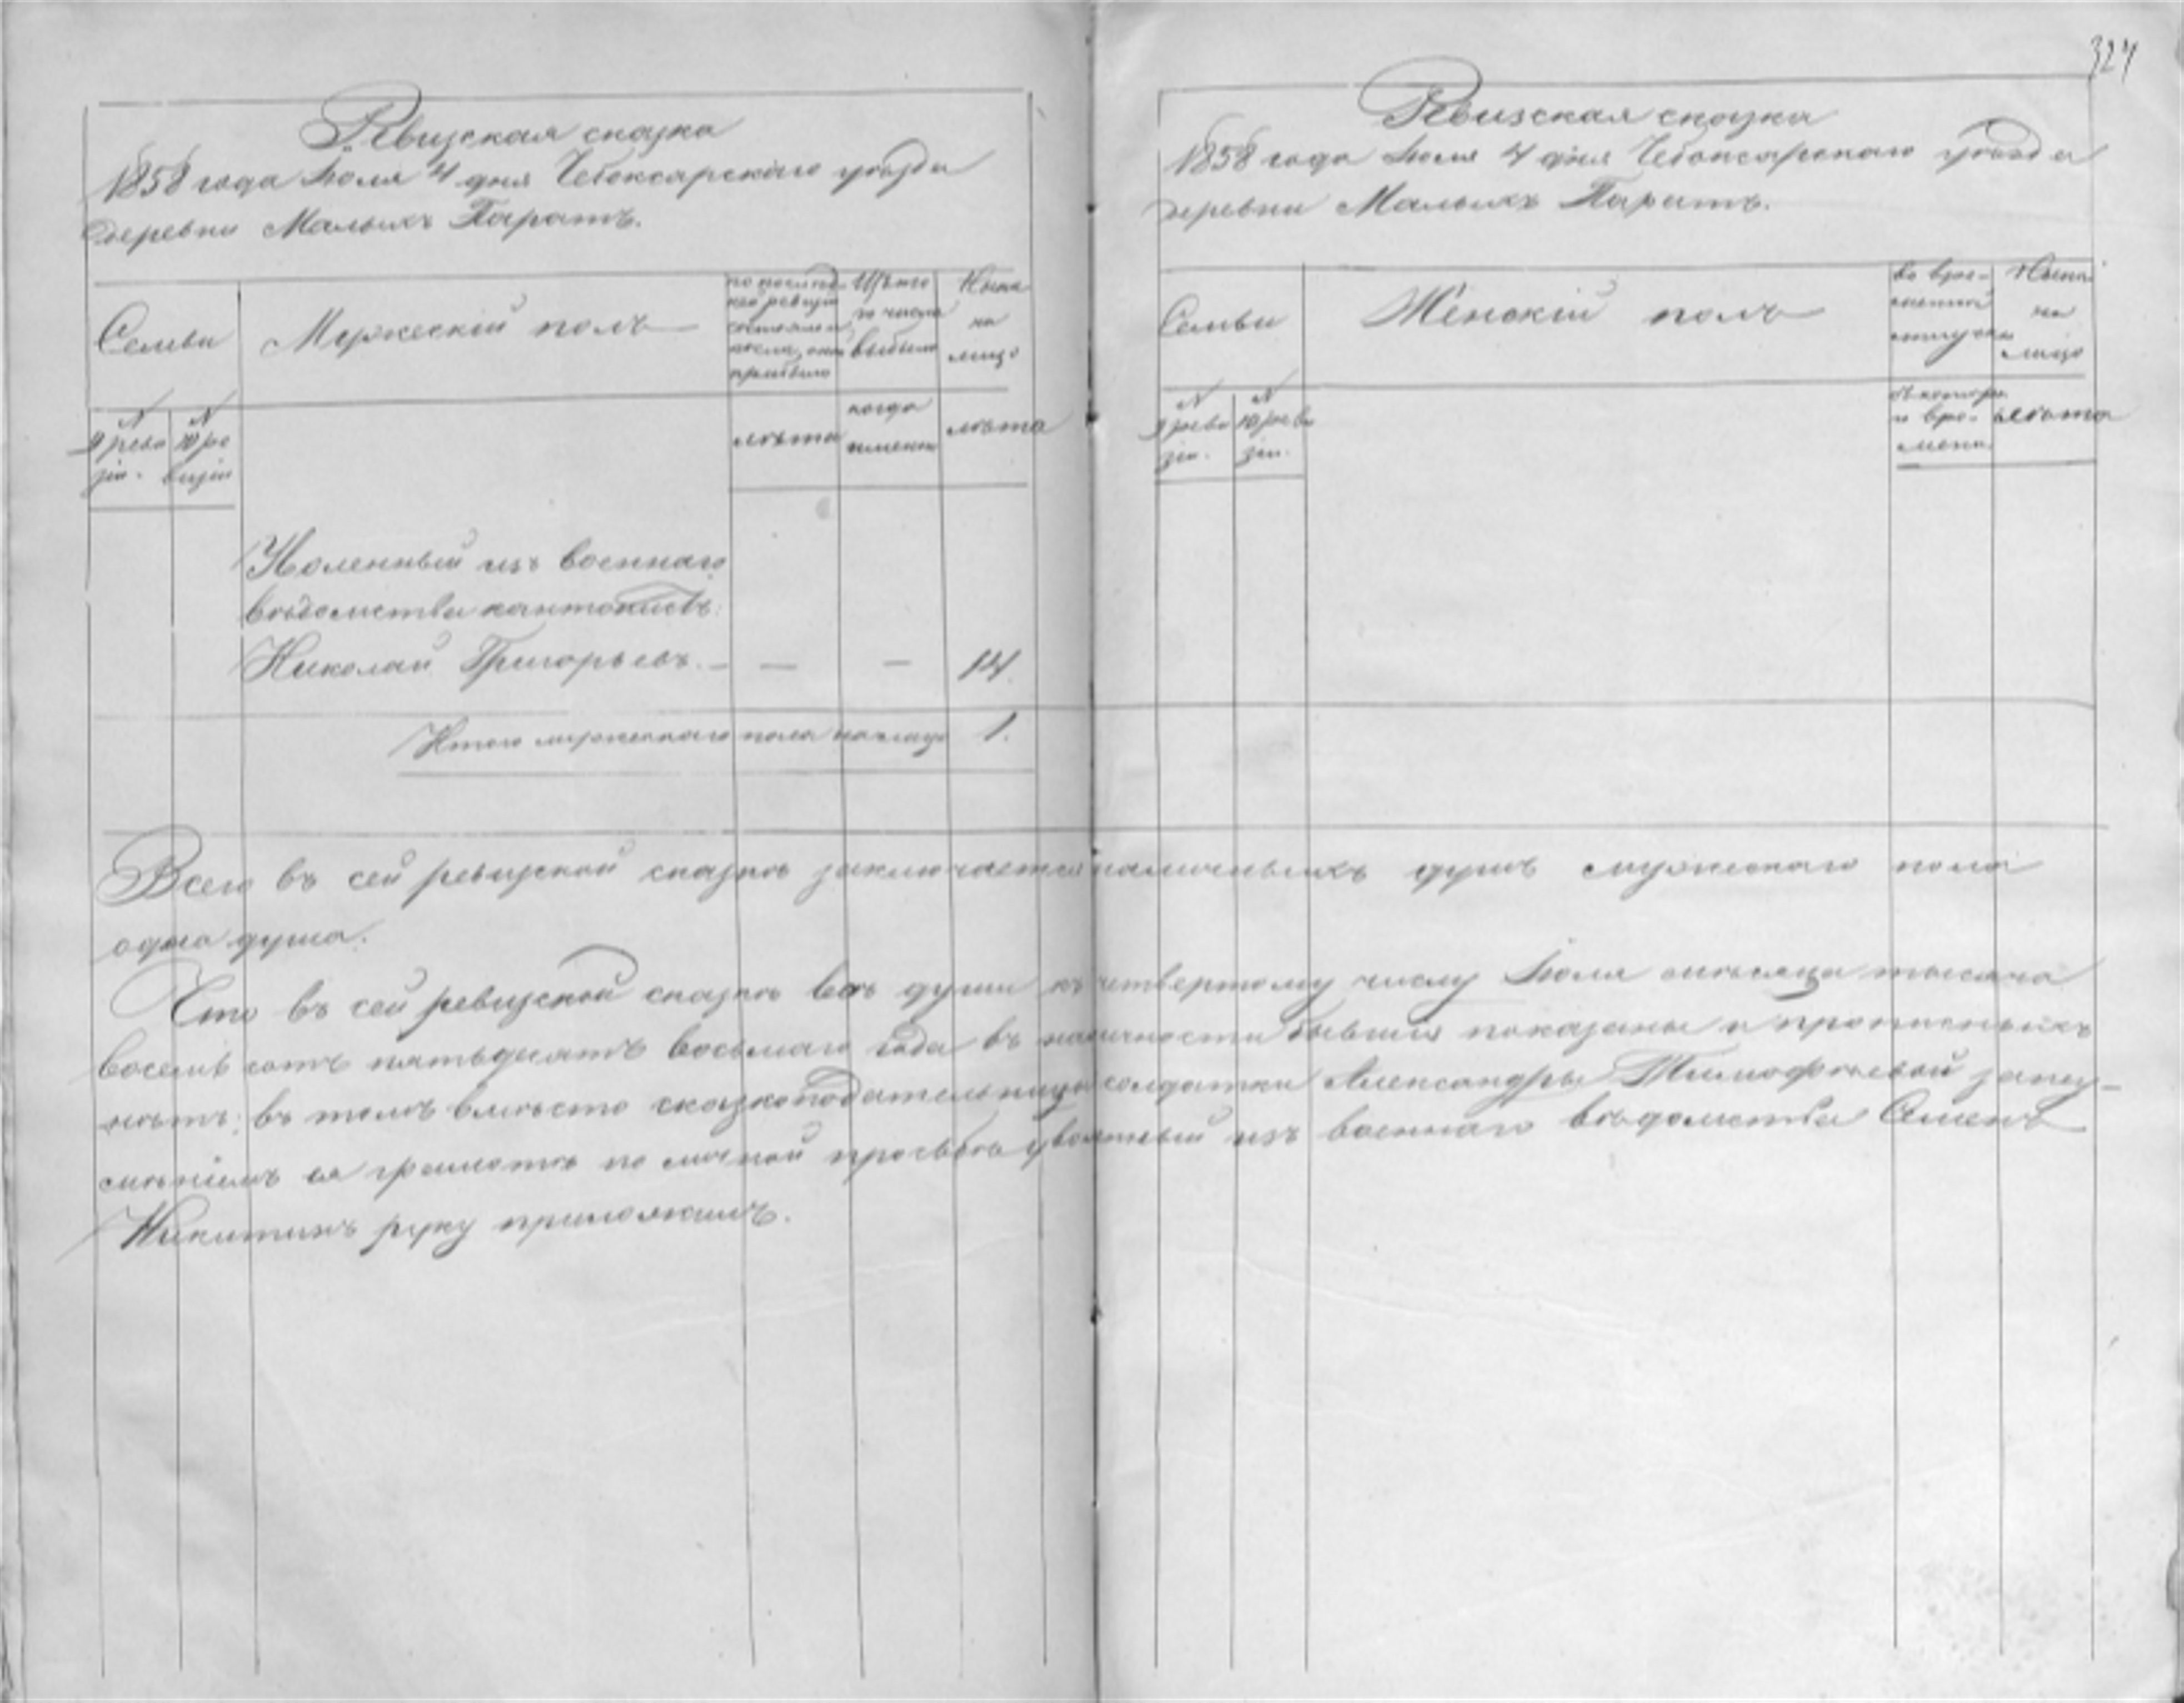 Ревизская сказка
1858 года Июля 4 дня Чебоксарскаго уѣзда
деревни Малыхъ Паратъ.
Семьи
Мужескій полъ
по послѣдней ревизіи состояло и послѣ оной прибыло
Изъ того числа выбыло
Нынѣ на лицо
№ 9 реви зіи.
№ 10 ре визіи
лѣта
когда именно
лѣта
Уволенный изъ военнаго
вѣдомства кантонистъ:
Николай Григорьевъ. — — — 14.
Итого мужескаго пола на лицо 1.
327
Ревизская сказка
1858 года Июля 4 дня Чебоксарскаго уѣзда
деревни Малыхъ Паратъ.
Семьи
Женскій полъ
Во вре- менной отлучкѣ
Нынѣ на лицо
№ 9 реви зіи.
№ 10 реви зіи.
съ котора- го вре- мени
лѣта
Всего въ сей ревизской сказкѣ заключается наличныхъ душъ мужескаго пола
одна душа.
Что въ сей ревизской сказкѣ всѣ души къ четвертому числу Июля мѣсяца тысяча
восемь сотъ пятьдесятъ восьмаго года въ наличности бывшія показаны и прописныхъ
нѣтъ; въ томъ вмѣсто сказкоподательницы солдатки Александры Тимофѣевой за неу-
мѣніемъ ея грамотѣ по личной просьбѣ уволенный изъ военнаго вѣдомства Семенъ
Никитинъ руку приложилъ.